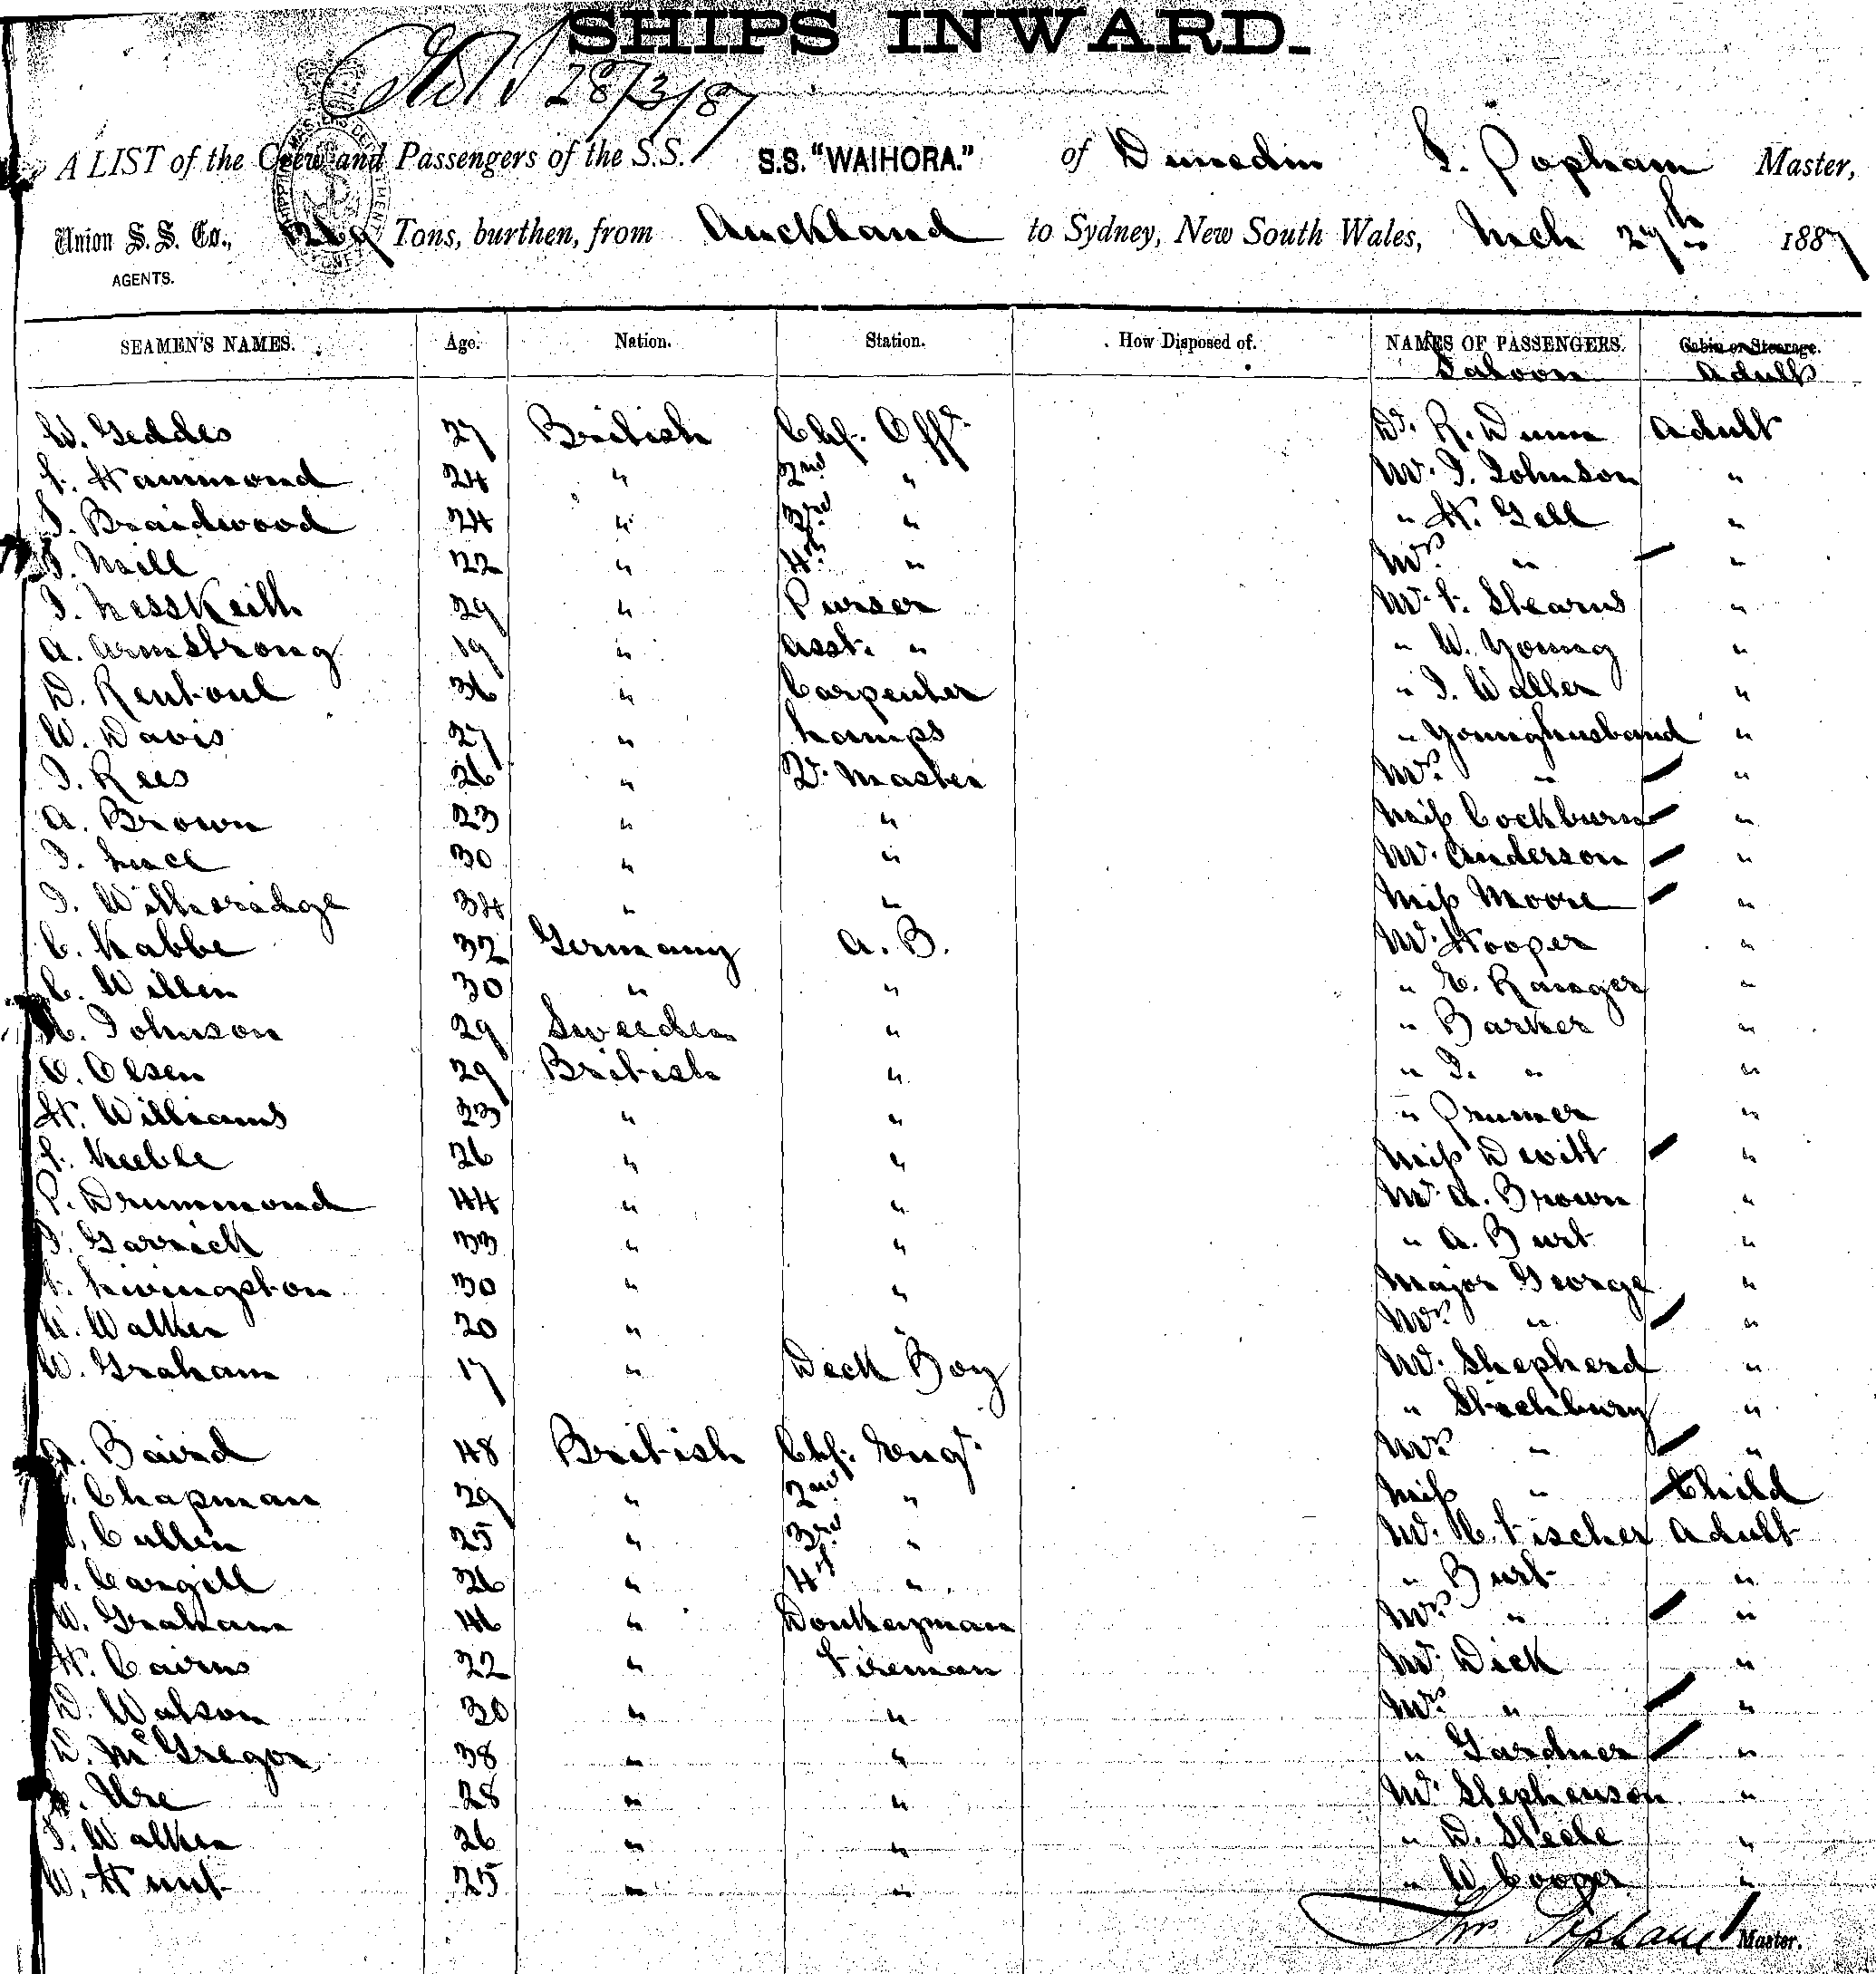 SHIPS INWARD.
28/3/87
A LIST of the Crew and Passengers of the S.S. S.S. "WAIHORA." of Dunedin T. Popham Master,
Union S. S. Co., 1269 Tons, burthen, from Auckland to Sydney, New South Wales, Mch 27th 1887
AGENTS.
SEAMEN'S NAMES. Age. Nation. Station. How Disposed of. NAMES OF PASSENGERS. Cabin or Steerage.
Saloon Adults
W. Geddes 27 British Chf. Offr. Dr. R. Dunn Adult
F. Hammond 24 " 2nd " Mr. J. Johnson "
J. Braidwood 24 " 3rd " " H. Gell "
J. Mill 22 " 4th " Mrs " "
J. NessKeith 29 " Purser Mr. F. Stearns "
A. Armstrong 19 " Asst. " " W. Young "
D. Rentoul 36 " Carpenter " J. Waller "
W. Davis 27 " Lamps " Younghusband "
J. Rees 26 " Qr. Master Mrs " "
A. Brown 23 " " Miss Cockburn "
J. Luce 30 " " Mr. Anderson "
J. Witheridge 34 " " Miss Moore "
C. Kabbe 32 Germany A. B. Mr. Hooper "
C. Willen 30 " " " E. Ranger "
Johnson 29 Sweeden " " Barker "
O. Olsen 29 British " " J. " "
H. Williams 23 " " " Prumer "
F. Keeble 26 " " Miss Devitt "
P. Drummond 44 " " Mr. A. Brown "
J. Garrick 33 " " " A. Burt "
F. Livingston 30 " " Major George "
Walker 20 " " Mrs " "
W. Graham 17 " Deck Boy Mr. Shepherd "
" Stechbury "
Baird 48 British Chf. Engr. Mrs " "
Chapman 29 " 2nd " Miss " Child
Cullen 25 " 3rd " Mr. C. Fischer Adult
Cargill 26 " 4th " " Burt "
W. Graham 46 " Donkeyman Mrs " "
H. Cairns 22 " Fireman Mr. Dick "
D. Watson 30 " " Mrs " "
D. McGregor 38 " " " Gardner "
Ure 28 " " Mr. Stephenson "
J. Walker 26 " " " D. Steele "
W. Hunt 25 " " " W. Cooper "
Popham Master.